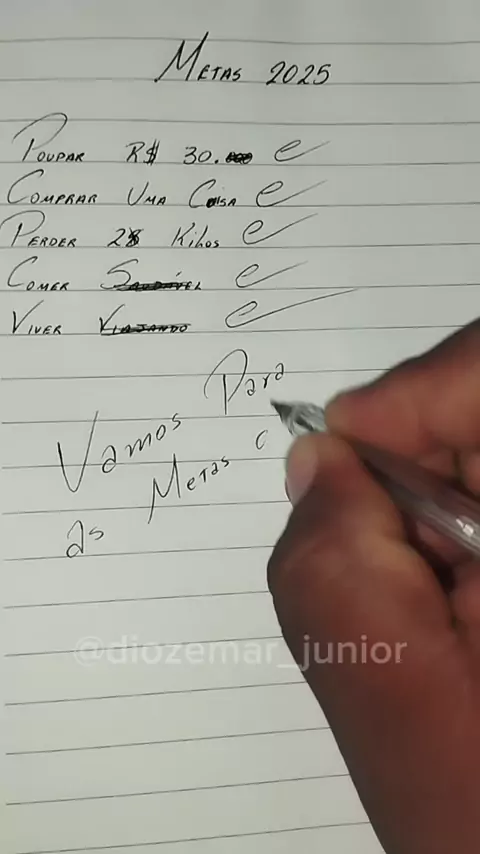 METAS 2025
POUPAR R$ 30.000
COMPRAR UMA COISA
PERDER 28 KILOS
COMER SAUDÁVEL
VIVER VIAJANDO
Vamos Para
as Metas
@diozemar_junior